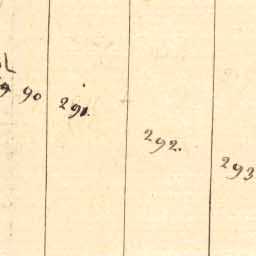 90 291.
292.
293